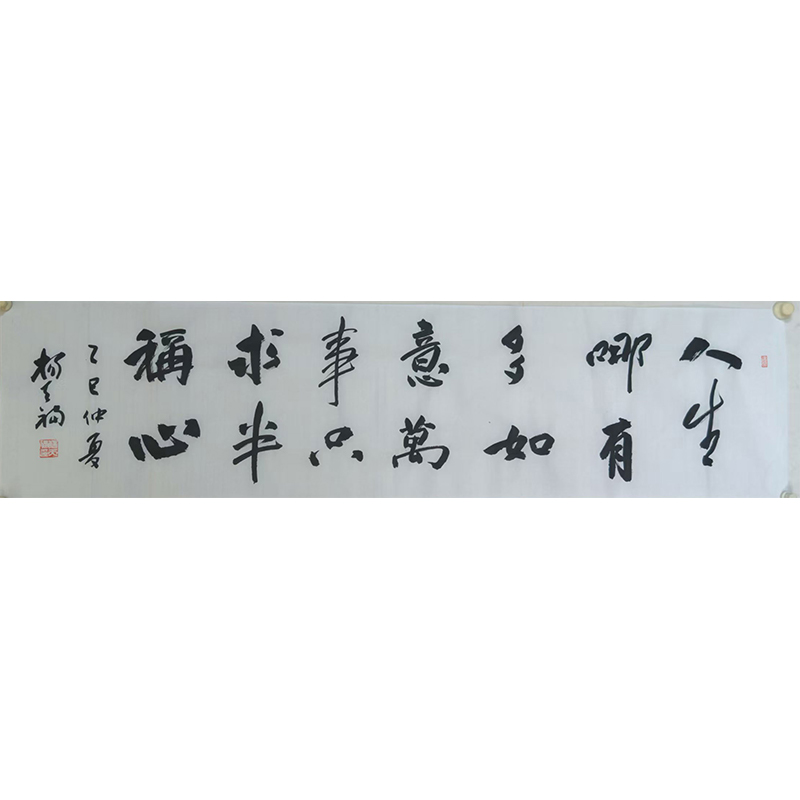 人生
哪有
多如
意萬
事只
求半
稱心
乙巳仲夏
楊天福